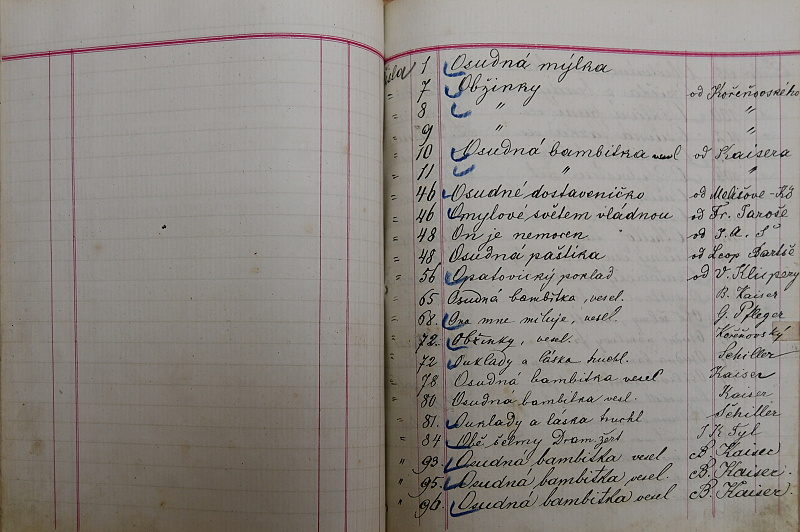 čísla 1 Osudná mýlka
" 7 Obžinky od Kořeňovského
" 8 " "
" 9 " "
" 10 Osudná bambitka vesel od Kaisera
" 11 " "
" 46 Osudné dostaveníčko od
" 46 Omylové světem vládnou od Fr. Jaroše
" 48 On je nemocen od J. A. S
" 48 Osudná paštika od Leop
" 56 Opatovický poklad od V. Klicpery
" 65 Osudná bambitka, vesel. B. Kaiser
" 68. Ona mne miluje, vesel G. Pfleger
" 72. Obžinky, vesel. Kořeňovský
" 72 Ouklady a láska truchl. Schiller
" 78 Osudná bambitka vesel Kaiser
" 80 Osudná bambitka vesl. Kaiser
" 81. Ouklady a láska truchl Schiller
" 84 Obě šelmy Dram. žert J K Tyl
" 93 Osudná bambitka vesel B. Kaiser
" 95. Osudná bambitka vesel. B. Kaiser.
" 96 Osudná bambitka vesel B. Kaiser.